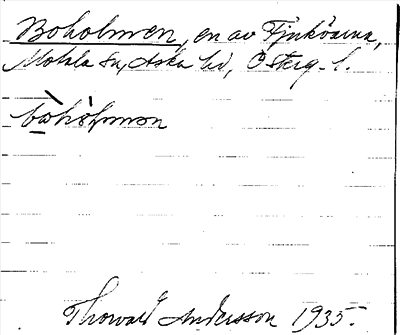 Boholmen, en av Fjuköarna,
Motala sn, Aska hd, Österg. l.
bòhòlmən
Thorwald Andersson 1935.